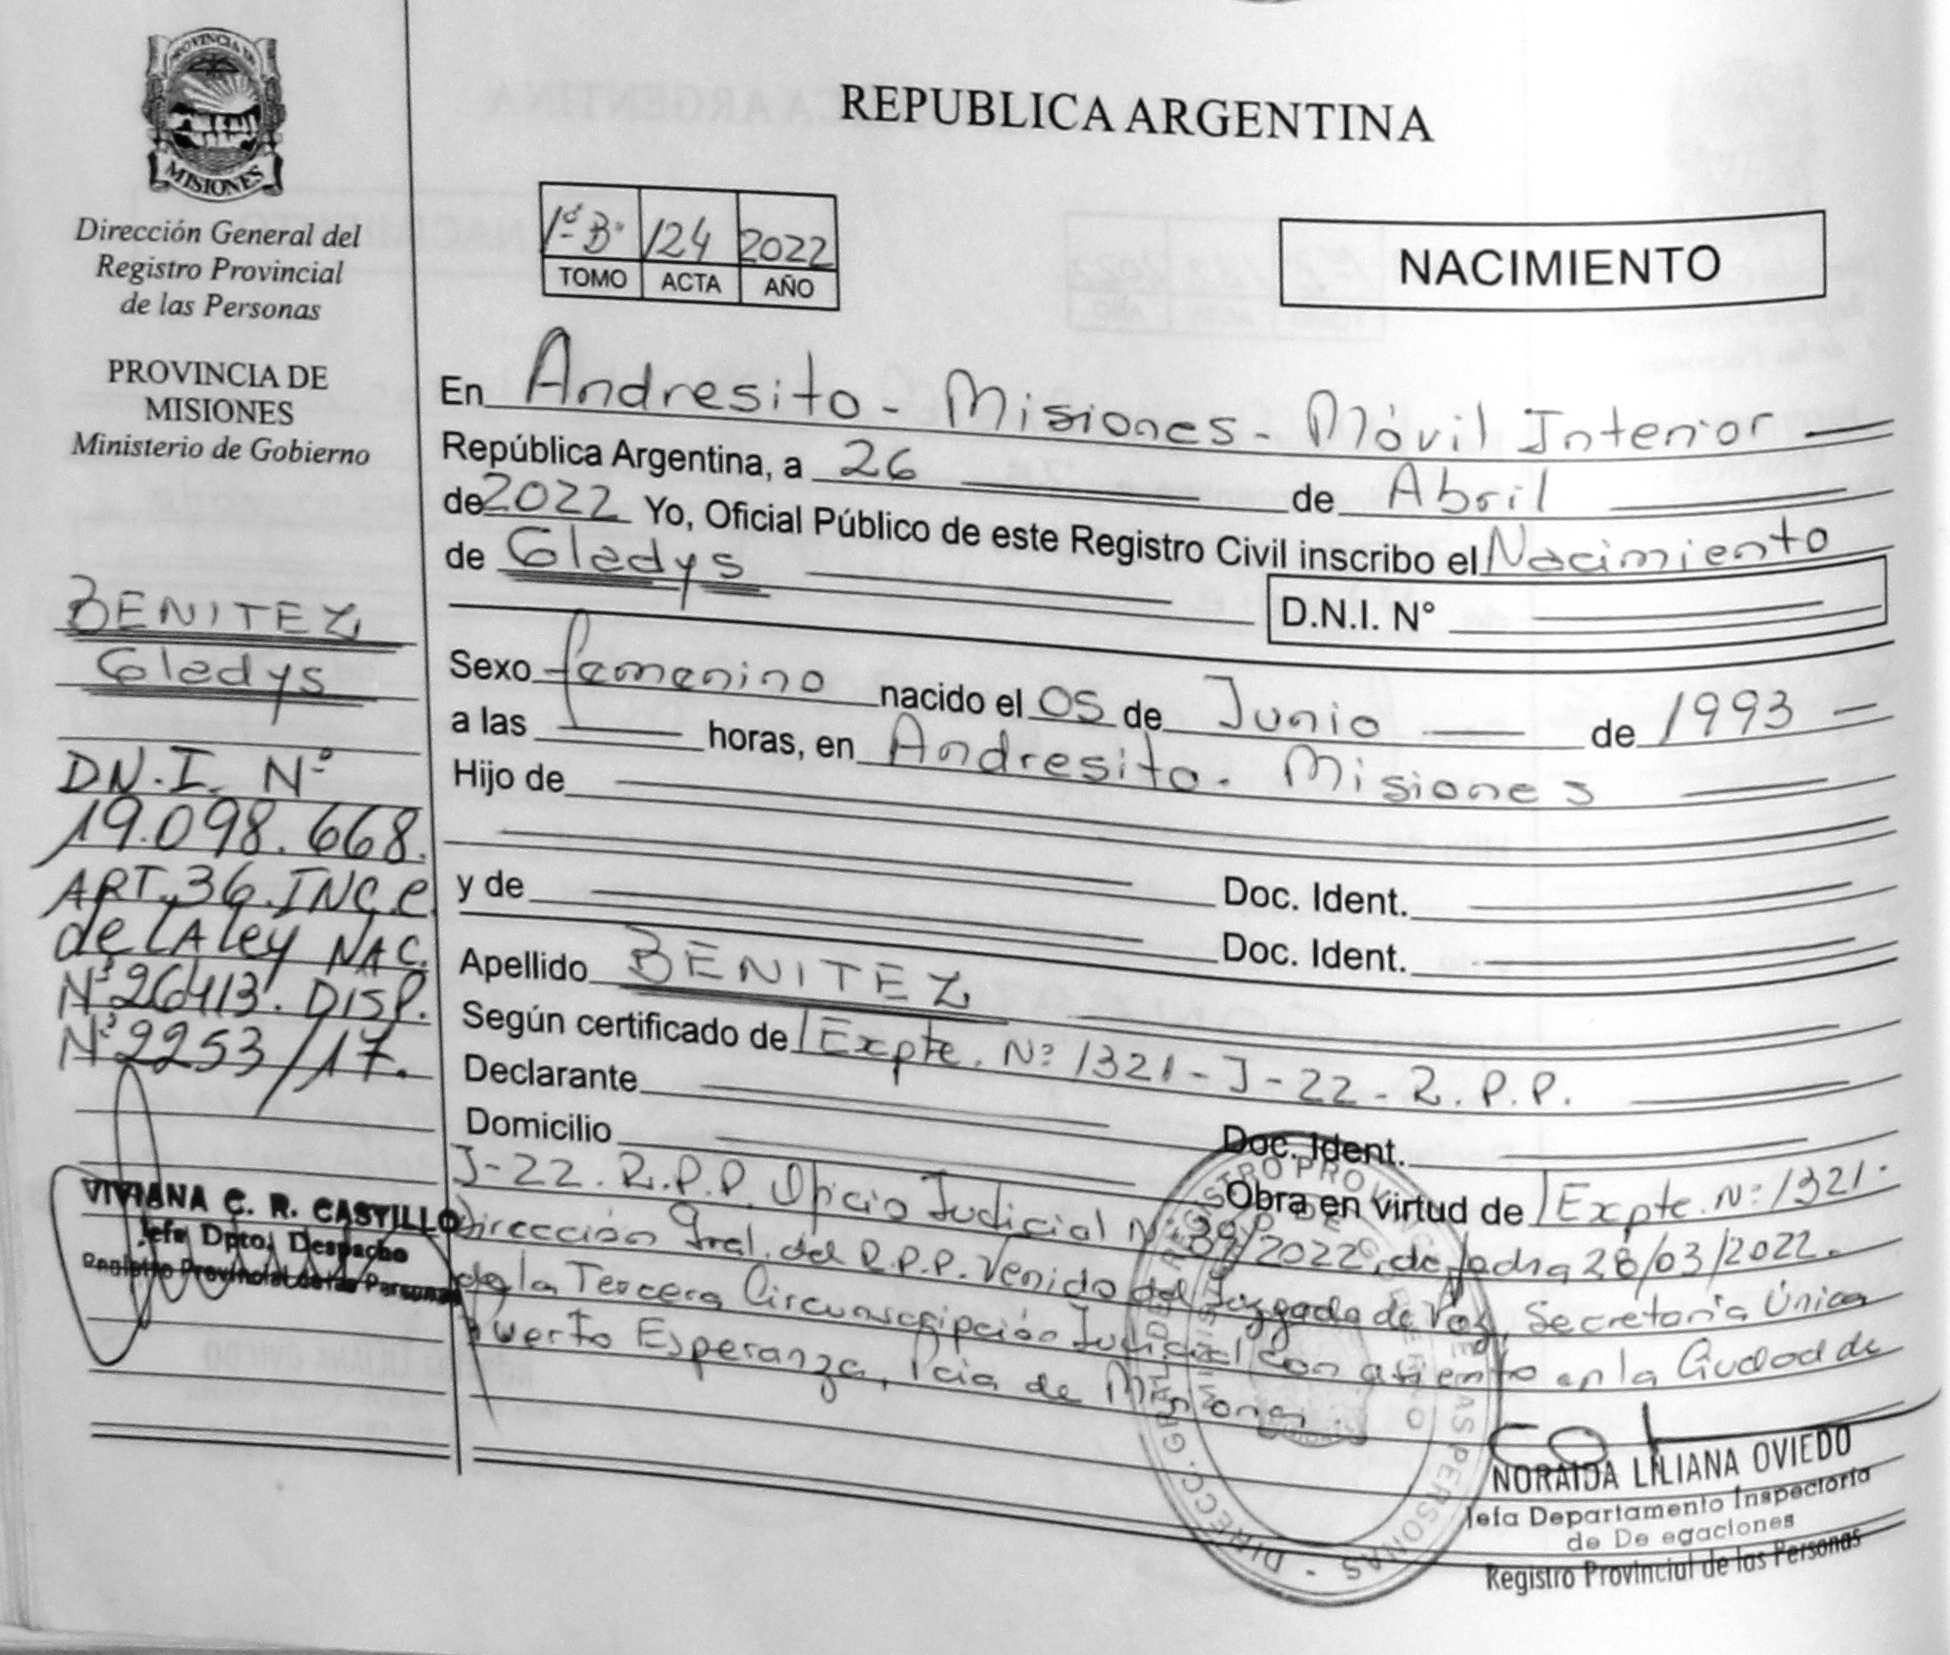 PROVINCIA DE
MISIONES
Dirección General del
Registro Provincial
de las Personas
PROVINCIA DE
MISIONES
Ministerio de Gobierno
BENITEZ
Gladys
DN.I. Nº
19.098.668.
ART. 36. INC. e
de LA ley NAC.
Nº 26413. DISP.
Nº 2253/17.
VIVIANA C. R. CASTILLO
Jefa Dpto. Despacho
Registro Provincial de las Personas
REPUBLICA ARGENTINA
1º B° 124 2022
TOMO ACTA AÑO
NACIMIENTO
En Andresito - Misiones - Móvil Interior
República Argentina, a 26 de Abril
de 2022 Yo, Oficial Público de este Registro Civil inscribo el Nacimiento
de Gladys
D.N.I. N°
Sexo femenino nacido el 05 de Junio de 1993
a las horas, en Andresito - Misiones
Hijo de
Doc. Ident.
y de
Doc. Ident.
Apellido BENITEZ
Según certificado de Expte. Nº 1321-J-22-R.P.P.
Declarante
Doc. Ident.
Domicilio
Obra en virtud de Expte. Nº 1321-
J-22. R.P.P. Oficio Judicial Nº 39/2022, de fecha 28/03/2022.
Dirección Gral. del R.P.P. Venido del Juzgado de Paz, Secretaría Única
de la Tercera Circunscripción Judicial con asiento en la Ciudad de
Puerto Esperanza, Pcia de Misiones.
DIRECC. GRAL. DEL REGISTRO PROVINCIAL DE LAS PERSONAS
MINISTERIO DE GOBIERNO
NORAIDA LILIANA OVIEDO
Jefa Departamento Inspectoría
de De egaciones
Registro Provincial de las Personas